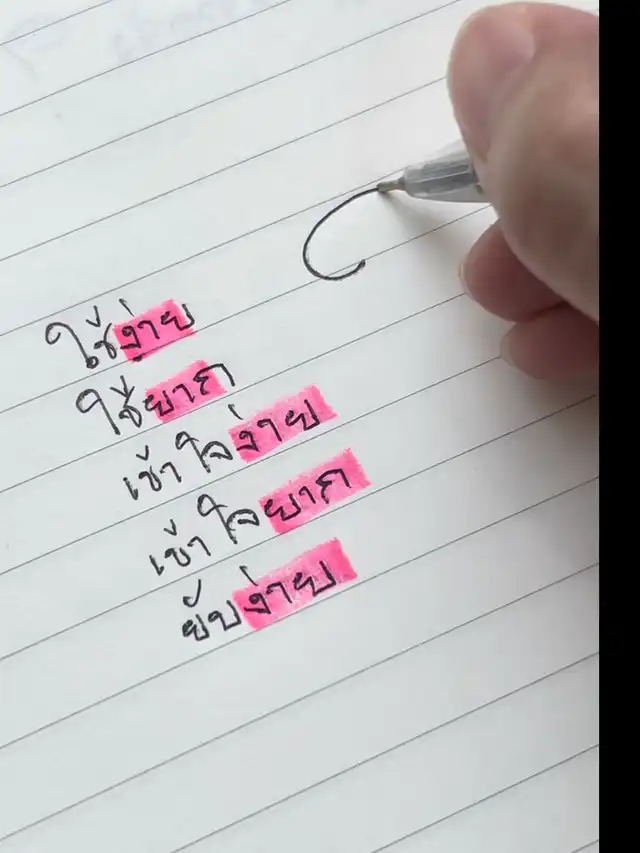 ใช้ง่าย
ใช้ยาก
เข้าใจง่าย
เข้าใจยาก
ยับง่าย